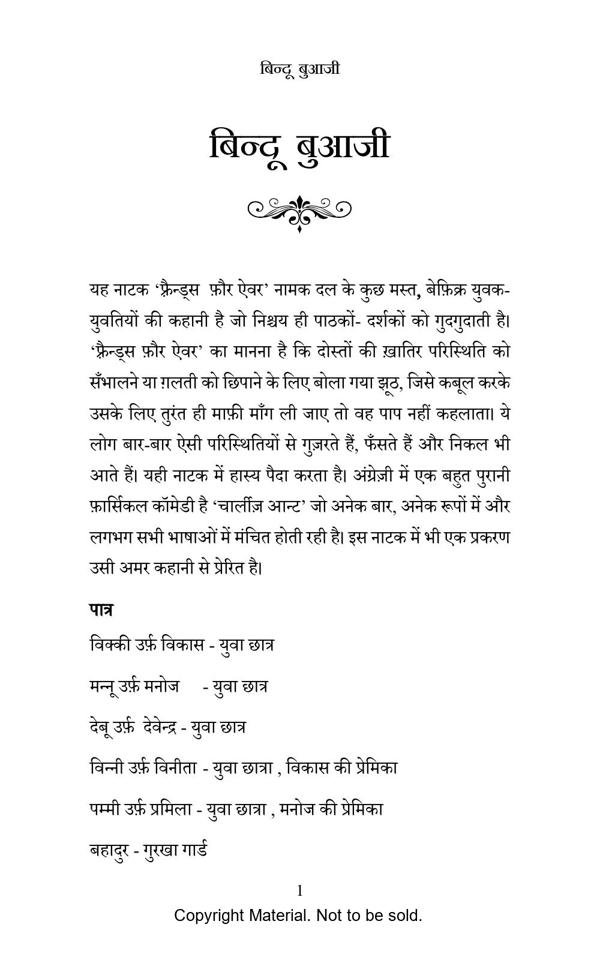 बिन्दू बुआजी
बिन्दू बुआजी
यह नाटक ‘फ़्रैन्ड्स फ़ौर ऐवर’ नामक दल के कुछ मस्त, बेफ़िक्र युवक-
युवतियों की कहानी है जो निश्चय ही पाठकों- दर्शकों को गुदगुदाती है।
‘फ़्रैन्ड्स फ़ौर ऐवर’ का मानना है कि दोस्तों की ख़ातिर परिस्थिति को
सँभालने या ग़लती को छिपाने के लिए बोला गया झूठ, जिसे कबूल करके
उसके लिए तुरंत ही माफ़ी माँग ली जाए तो वह पाप नहीं कहलाता। ये
लोग बार-बार ऐसी परिस्थितियों से गुज़रते हैं, फँसते हैं और निकल भी
आते हैं। यही नाटक में हास्य पैदा करता है। अंग्रेज़ी में एक बहुत पुरानी
फ़ार्सिकल कॉमेडी है ‘चार्लीज़ आन्ट’ जो अनेक बार, अनेक रूपों में और
लगभग सभी भाषाओं में मंचित होती रही है। इस नाटक में भी एक प्रकरण
उसी अमर कहानी से प्रेरित है।
पात्र
विक्की उर्फ़ विकास - युवा छात्र
मन्नू उर्फ़ मनोज - युवा छात्र
देबू उर्फ़ देवेन्द्र - युवा छात्र
विन्नी उर्फ़ विनीता - युवा छात्रा , विकास की प्रेमिका
पम्मी उर्फ़ प्रमिला - युवा छात्रा , मनोज की प्रेमिका
बहादुर - गुरखा गार्ड
1
Copyright Material. Not to be sold.